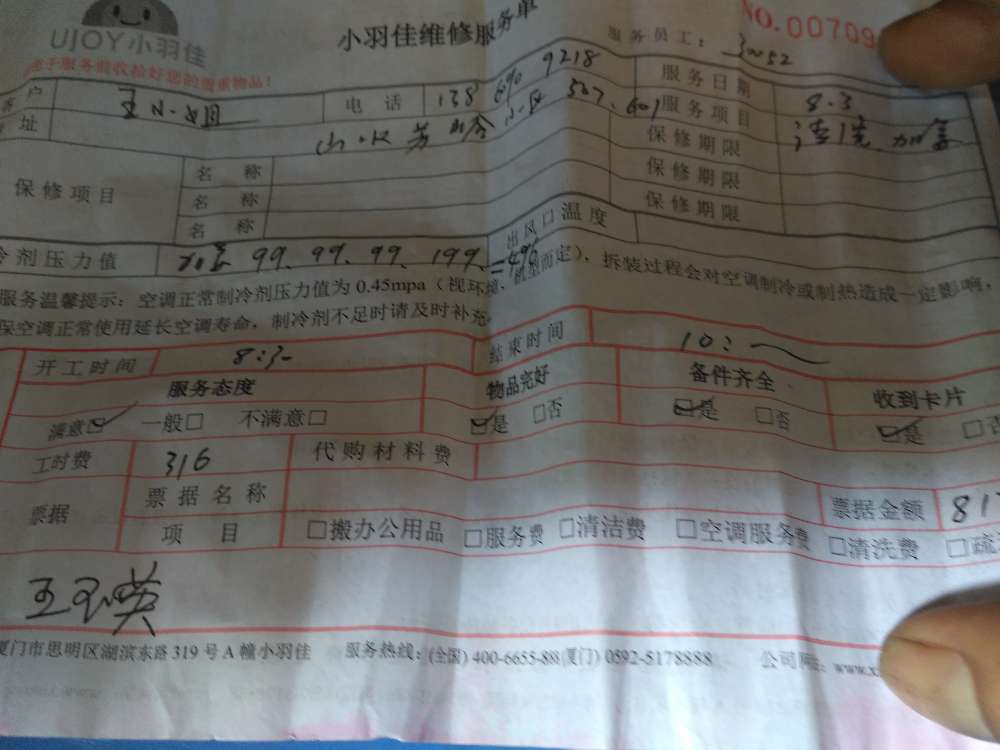 UJOY小羽佳
小羽佳维修服务单
服务员工: 30052
NO.00709
户 王小姐 电话 138 690 9218 服务日期 8.3
址 小区 507.601 服务项目 清洗 加氟
保修项目 名称 保修期限
名称 保修期限
名称 保修期限
剂压力值 加氟 99. 99. 99. 199. =496 出风口温度
服务温馨提示: 空调正常制冷剂压力值为 0.45mpa (视环境、机型而定), 拆装过程会对空调制冷或制热造成一定影响,
保空调正常使用延长空调寿命, 制冷剂不足时请及时补充
开工时间 8:30 结束时间 10:
服务态度 物品完好 备件齐全 收到卡片
满意☑ 一般□ 不满意□ ☑是 □否 ☑是 □否 ☑是 □否
工时费 316 代购材料费
票据 票据名称 票据金额 81
项目 □搬办公用品 □服务费 □清洁费 □空调服务费 □清洗费 □疏
厦门市思明区湖滨东路 319 号 A 幢小羽佳 服务热线: (全国) 400-6655-888 (厦门) 0592-5178888 公司网址: www.x